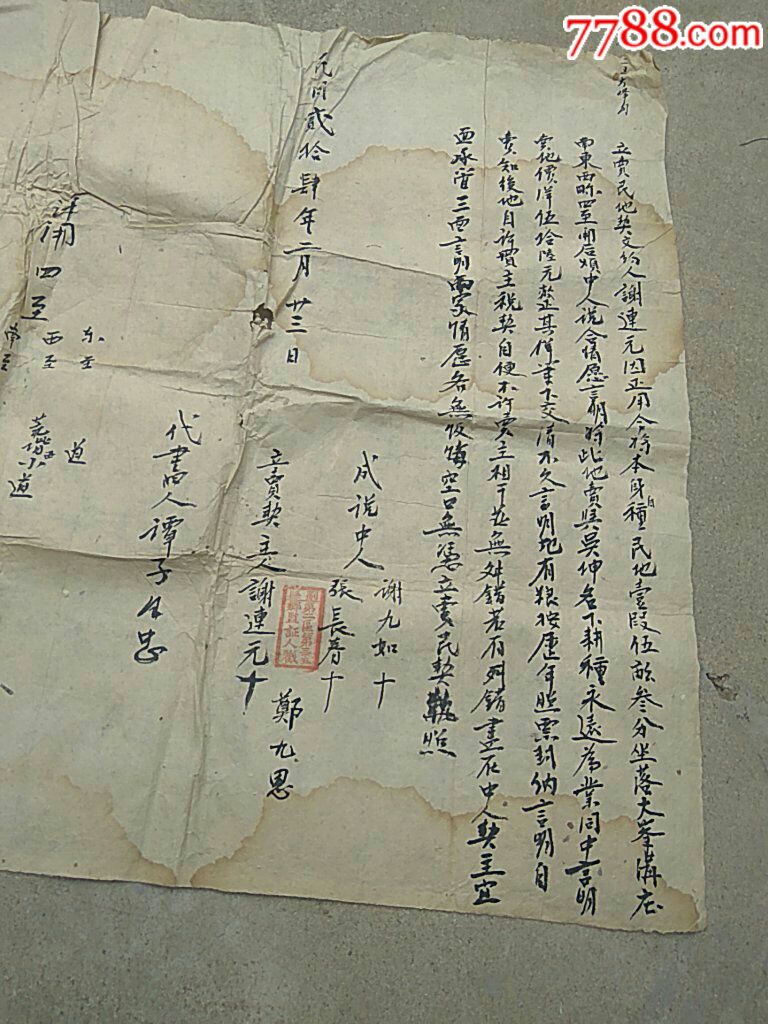 7788.com
立賣民地契文約人謝連元因正用今将本身自種民地壹段伍畝叁分坐落大峯溝庄
南東西畛四至開后煩中人说合情愿言明将此地賣與吴仲名下耕種永遠為業同中言明
賣地價洋伍拾陸元整其洋筆下交清不欠言明地有粮按歷年照票封纳言明自
賣知後地自許買主税契自便不许賣主相干並無舛錯若有舛錯盡在中人契主宜
面承管三面言明兩家情愿各無反悔空口無憑立賣民契執照
成说中人 謝九如 十
張長春 十
鄭九恩
立賣契主人 謝連元 十
代書四人 譚子 忠
民國貳拾肆年二月廿三日
計開四至
东至 道
西至
南至 道